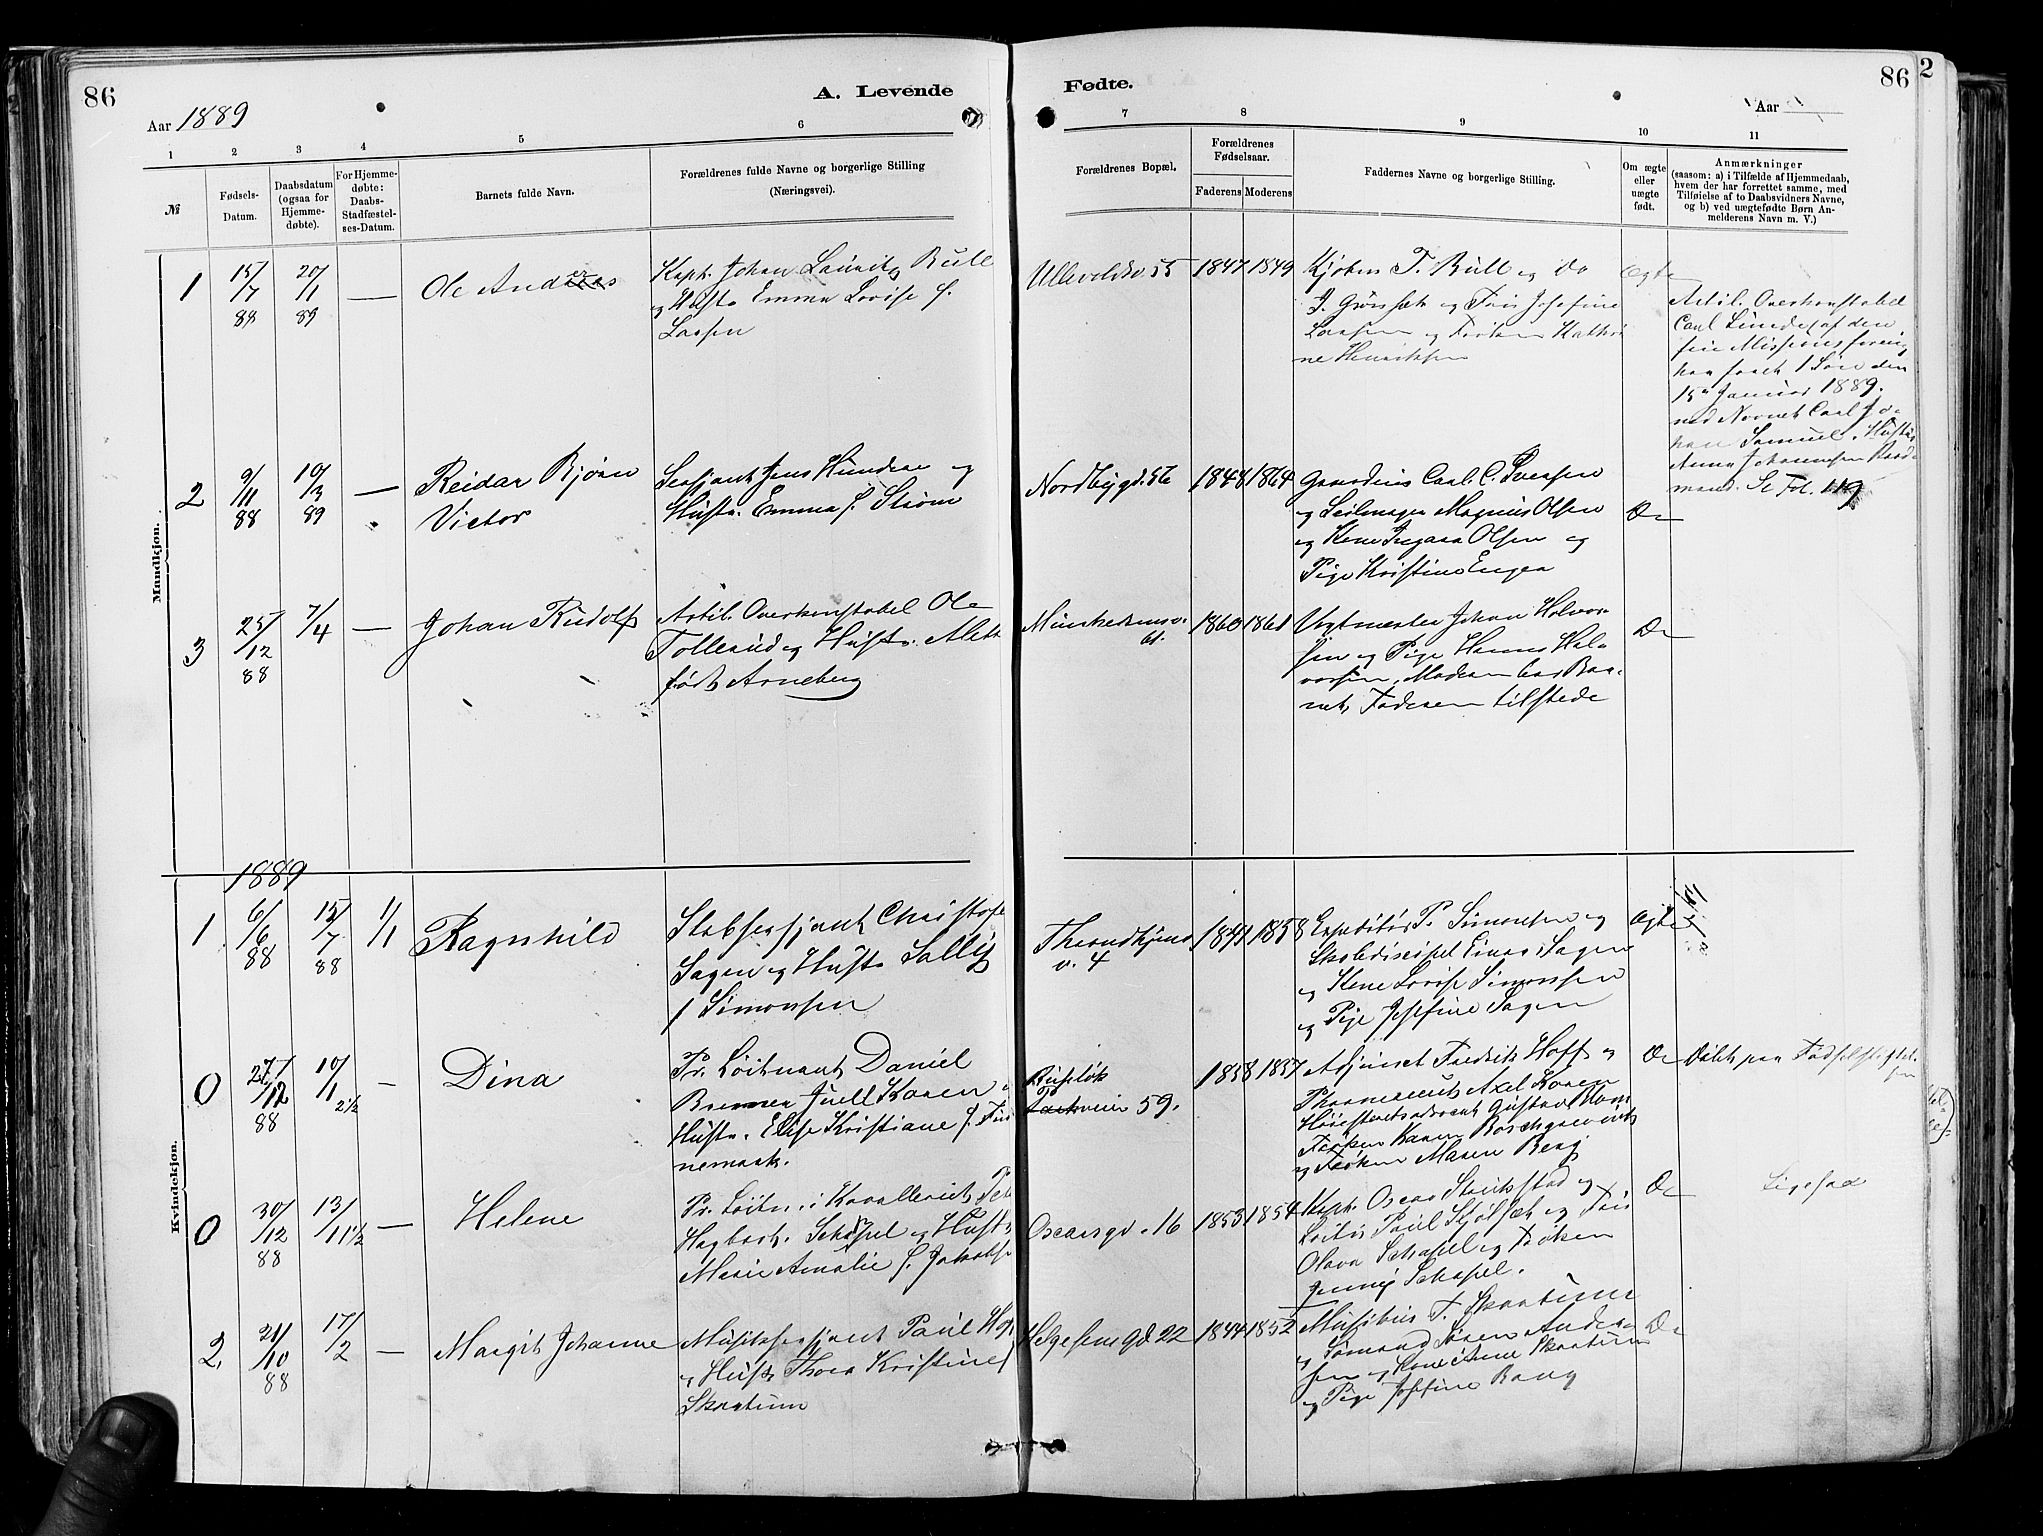 86
A. Levende
Aar 1889
1 2 3 4 5 6
№
Fødsels-
Datum.
Daabsdatum
(ogsaa for
Hjemme-
døbte).
For Hjemme-
døbte:
Daabs-
Stadfæstel-
ses-Datum.
Barnets fulde Navn.
Forældrenes fulde Navne og borgerlige Stilling
(Næringsvei).
Fødte.
86
2
Aar
7 8 9 10 11
Forældrenes Bopæl.
Forældrenes
Fødselsaar.
Faderens Moderens
Faddernes Navne og borgerlige Stilling.
Om ægte
eller
uægte
født.
Anmærkninger
(saasom: a) i Tilfælde af Hjemmedaab,
hvem der har forrettet samme, med
Tilføielse af to Daabsvidners Navne,
og b) ved uægtefødte Børn An-
melderens Navn m. V.)
Mandkjøn.
1
15/7 88
20/1 89
—
Ole Andreas
Kapt. Johan Lauritz Bull
og Hustr Emma Lovise f.
Larsen
Ullevoldsv. 55
1847 1849
Kjøbm T. Bull og Do
J. Grønsæt og Frøis Josefine
Larsen og Frøken Kathri
ne Henriksen
Ægte
Artil. Overkonstabel
Carl Linde af den
frie Missionsforenig
har faaet 1 Søn den
15de Januar 1889.
med Navnet Carl Jo-
han Samuel. Hustru
Anna Johannesen
mand. Se Fol. 119
2
9/11 88
10/3 89
—
Reidar Bjørn
Victor
Sersjant Jens Hundrae og
Hustr. Emma f. Strøm
Nordbygd. 56
1848 1864
Guardius Carl C. Svensen
og Seilmager Magnus Olsen
og Kone Ingara Olsen og
Pige Kristine Engen
Do
3
25/12 88
7/4
—
Johan Rudolf
Artil. Overkonstabel Ole
Tollerud og Hustr. Mette
født Arneberg
Munkedamsv.
61.
1860 1861
Vagtmester Johan Halvor-
sen og Pige Hanna Hal-
vorsen, Moderen bar Bar-
net, Faderen tilstede
Do
Kvindekjøn.
1889
1
6/6 88
15/7 88
1/1
Ragnhild
Stabssersjant Christofer
Sagen og Hustr Sally
f Simonsen
Throndhjems
v. 4
1841 1858
Expeditør P. Simonsen og
Skolediscipel Einar Sagen
og Kone Lovise Simonsen
og Pige Josefine Sagen
Ægte
0
27/12 88
10/1 2½
—
Dina
Pr. Løitnant Daniel
Bremer Juell Koren og
Hustr. Elise Kristiane f. Fin
nemark.
Rusløk
veien 59.
1858 1857
Adjunct Fredrik Hoff og
Pharmaceut Axel Koren
Høiesteretsadvocat Gustav Blom
Frøken Karen Borchgrevink
og Frøken Maren Berg
Do
Døbt paa Fødselsstiftel
sen
0
30/12 88
13/1 1½
—
Helene
Pr. Løitn. i Kavalleriet Pet
Hagbart. Schapel og Hustr.
Marie Amalie f. Jakobse
Oscarsgd. 16
1853 1854
Kapt. Oscar Strikstad og
Løitn Paul Skjølsæt og Frøis
Olava Schapel og Frøken
Jenny Schapel.
Do
Ligesaa
2.
21/10 88
17/2
—
Margit Johanne
Musiksersjant Paul Hop
og Hustr. Thora Kristine f
Skratrum
Helgesensgd 22
1844 1852
Musikus T. Skratrum
og Sømand Søren Ander-
sen og Kone Anne Skratrum
og Pige Josefine Bang
Do